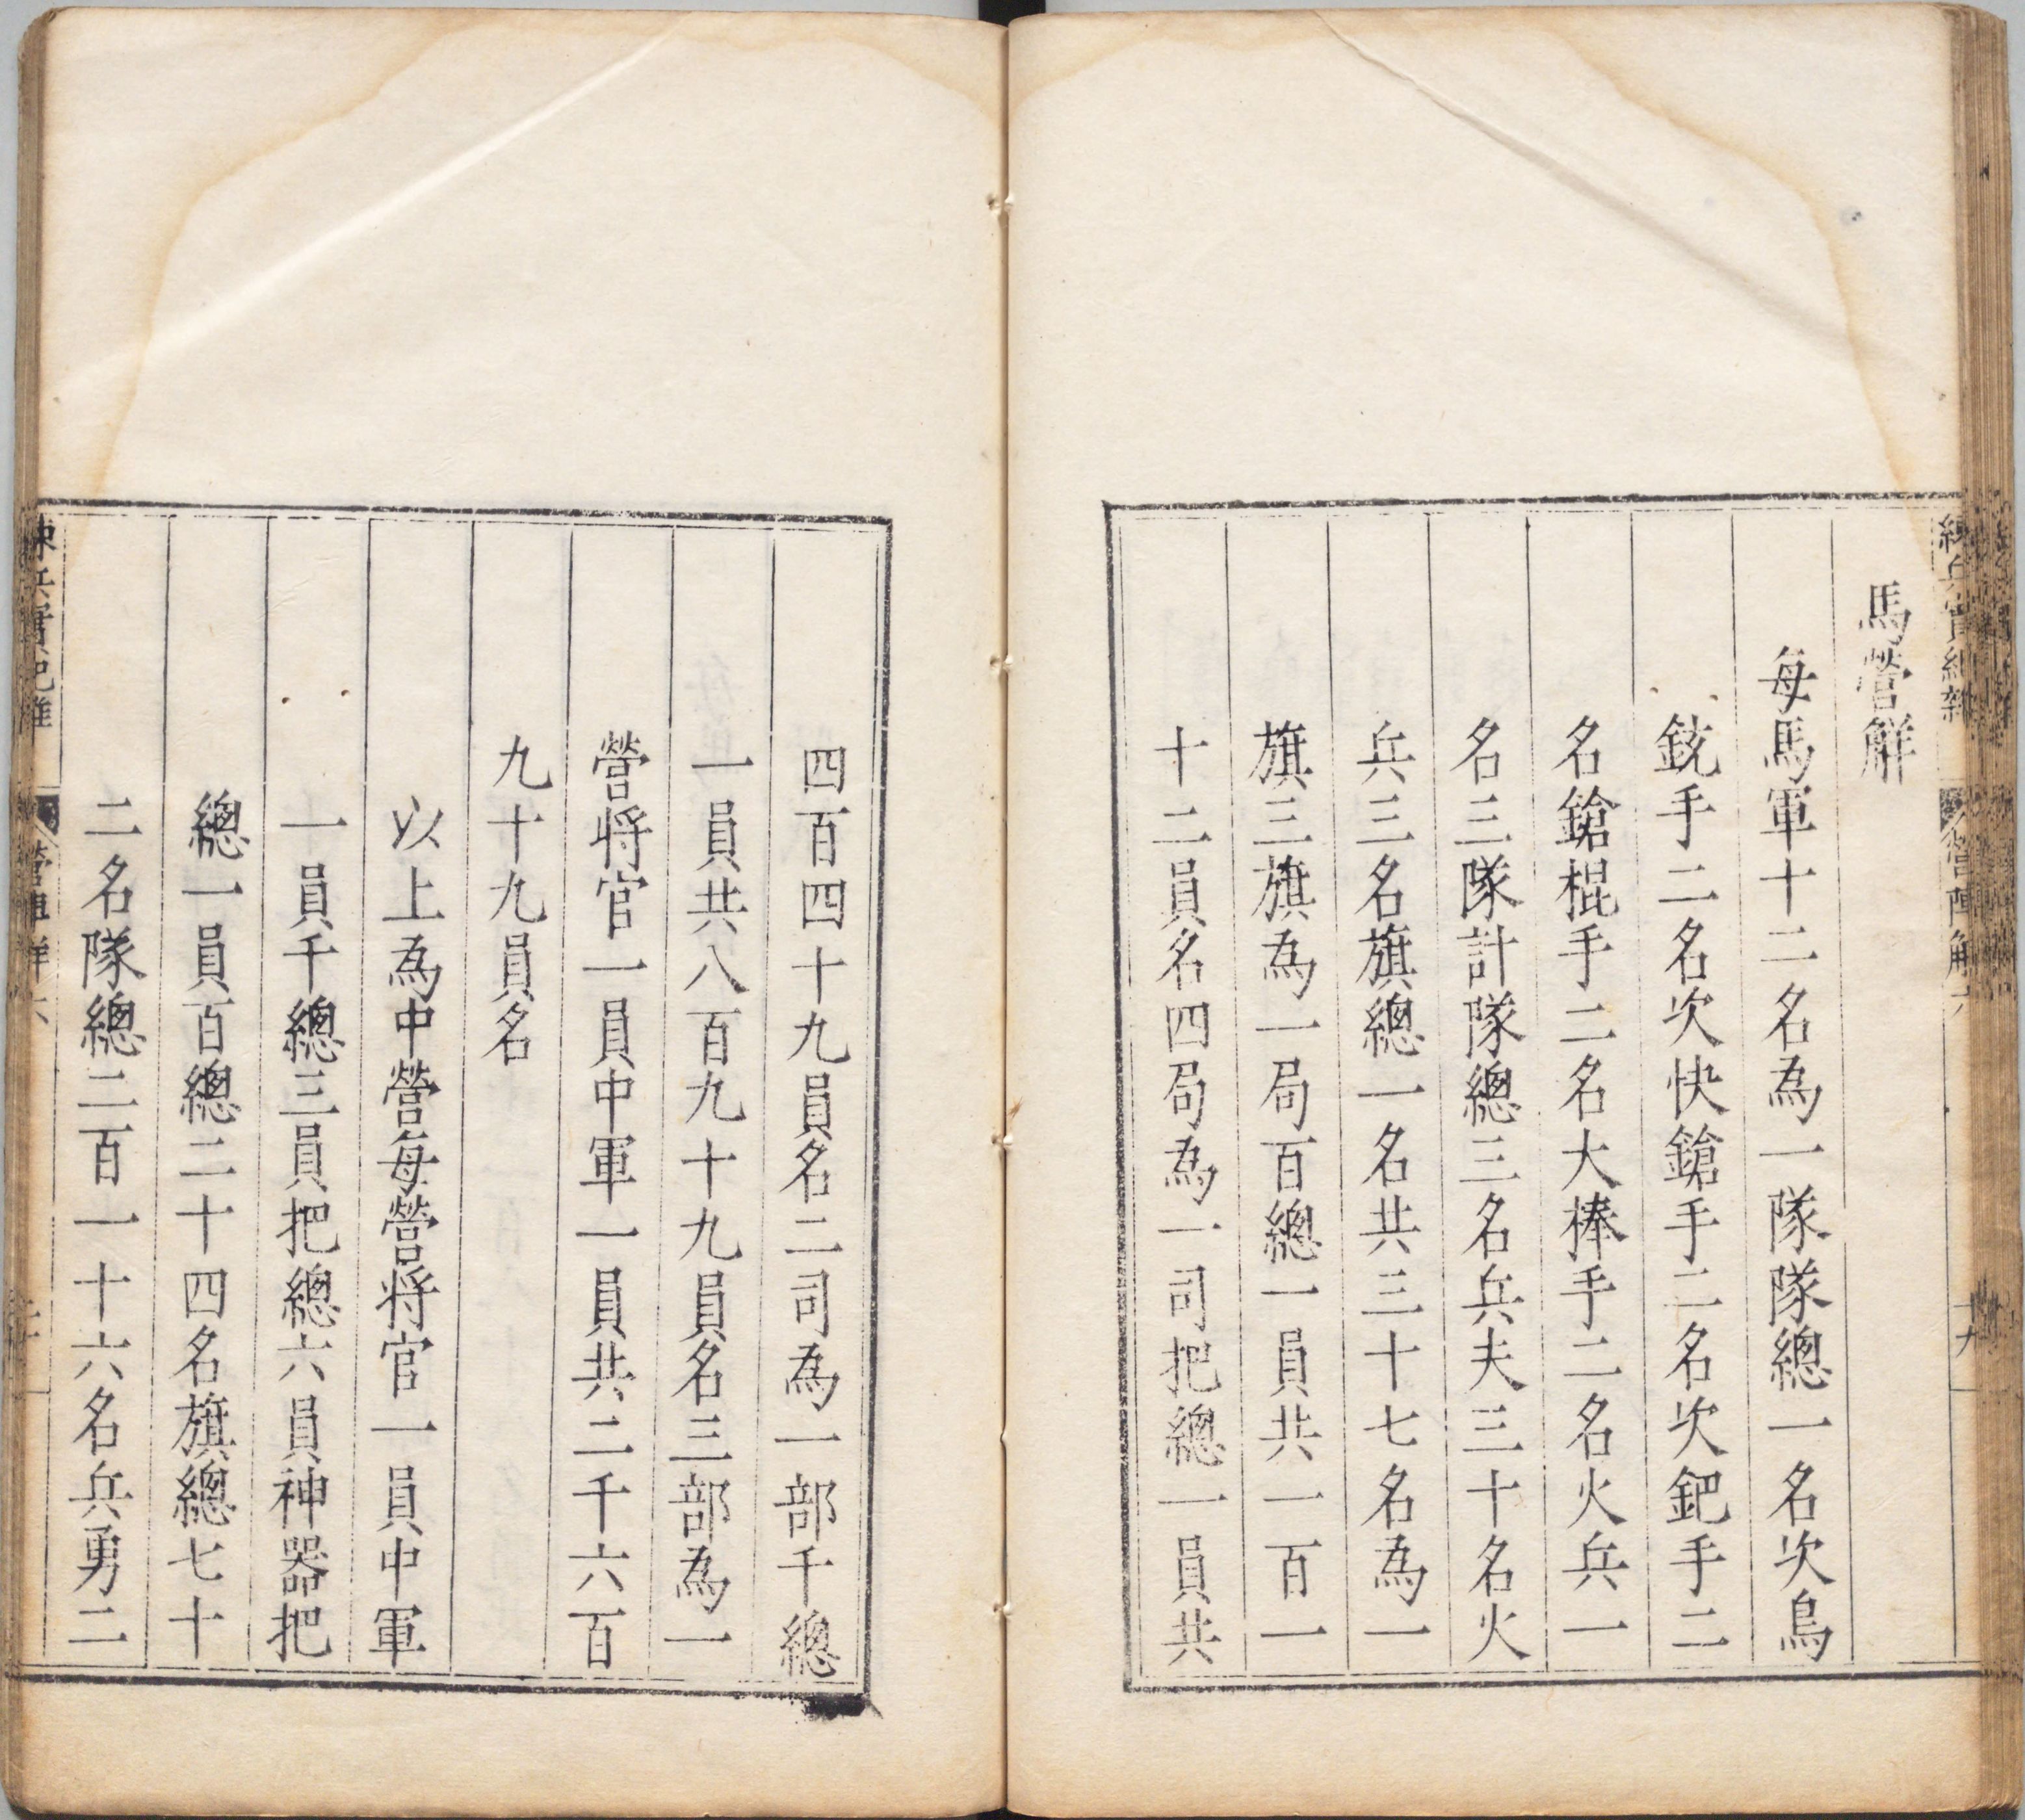 馬營解
每馬軍十二名為一隊隊總一名次鳥
銃手二名次快鎗手二名次鈀手二
名鎗棍手二名大棒手二名火兵一
名三隊計隊總三名兵夫三十名火
兵三名旗總一名共三十七名為一
旗三旗為一局百總一員共一百一
十二員名四局為一司把總一員共
四百四十九員名二司為一部千總
一員共八百九十九員名三部為一
營将官一員中軍一員共二千六百
九十九員名
以上為中營每營将官一員中軍
一員千總三員把總六員神器把
總一員百總二十四名旗總七十
二名隊總二百一十六名兵勇二